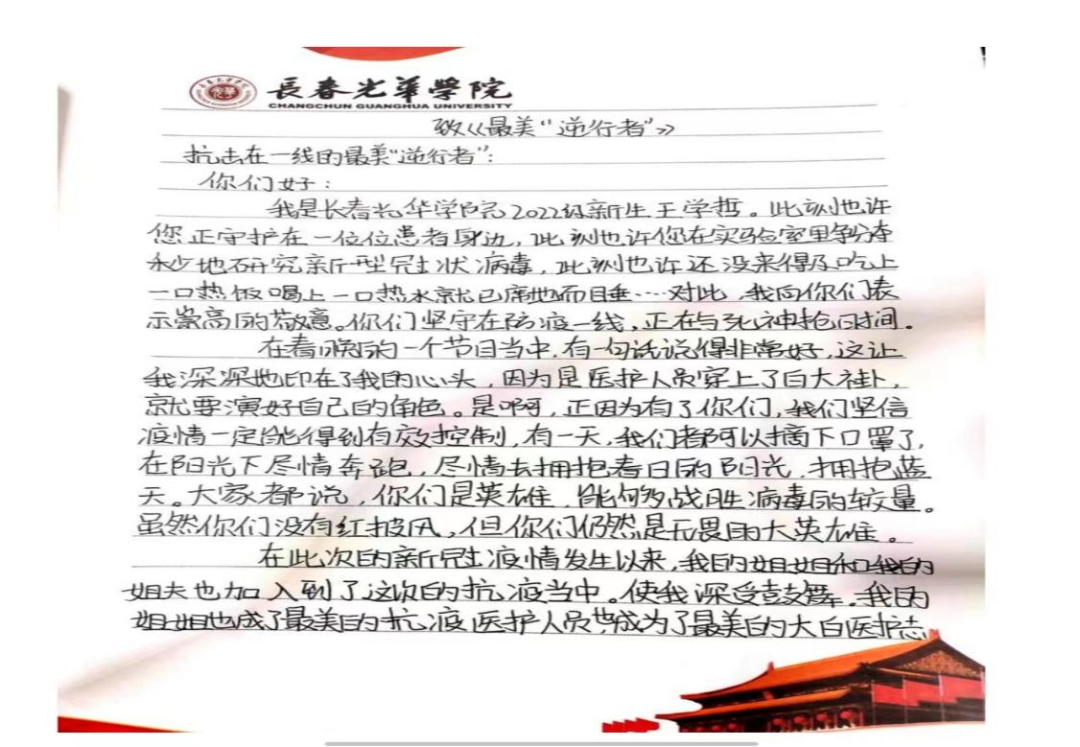 長春光華學院
CHANGCHUN GUANGHUA UNIVERSITY
致《最美“逆行者”》
抗击在一线的最美“逆行者”:
你们好:
我是长春光华学院2022级新生王学哲。此刻也许
您正守护在一位位患者身边,此刻也许您在实验室里争分夺
秒地研究新型冠状病毒,此刻也许还没来得及吃上
一口热饭喝上一口热水就已席地而睡……对此,我向你们表
示崇高的敬意。你们坚守在防疫一线,正在与死神抢时间。
在春晚的一个节目当中,有一句话说得非常好,这让
我深深地印在了我的心头,因为是医护人员穿上了白大褂,
就要演好自己的角色。是啊,正因为有了你们,我们坚信
疫情一定能得到有效控制,有一天,我们都可以摘下口罩了,
在阳光下尽情奔跑,尽情去拥抱春日的阳光,拥抱蓝
天。大家都说,你们是英雄,能够战胜病毒的较量。
虽然你们没有红披风,但你们仍然是无畏的大英雄。
在此次的新冠疫情发生以来,我的姐姐和我的
姐夫也加入到了这次的抗疫当中。使我深受鼓舞。我的
姐姐也成了最美的抗疫医护人员也成为了最美的大白医护志